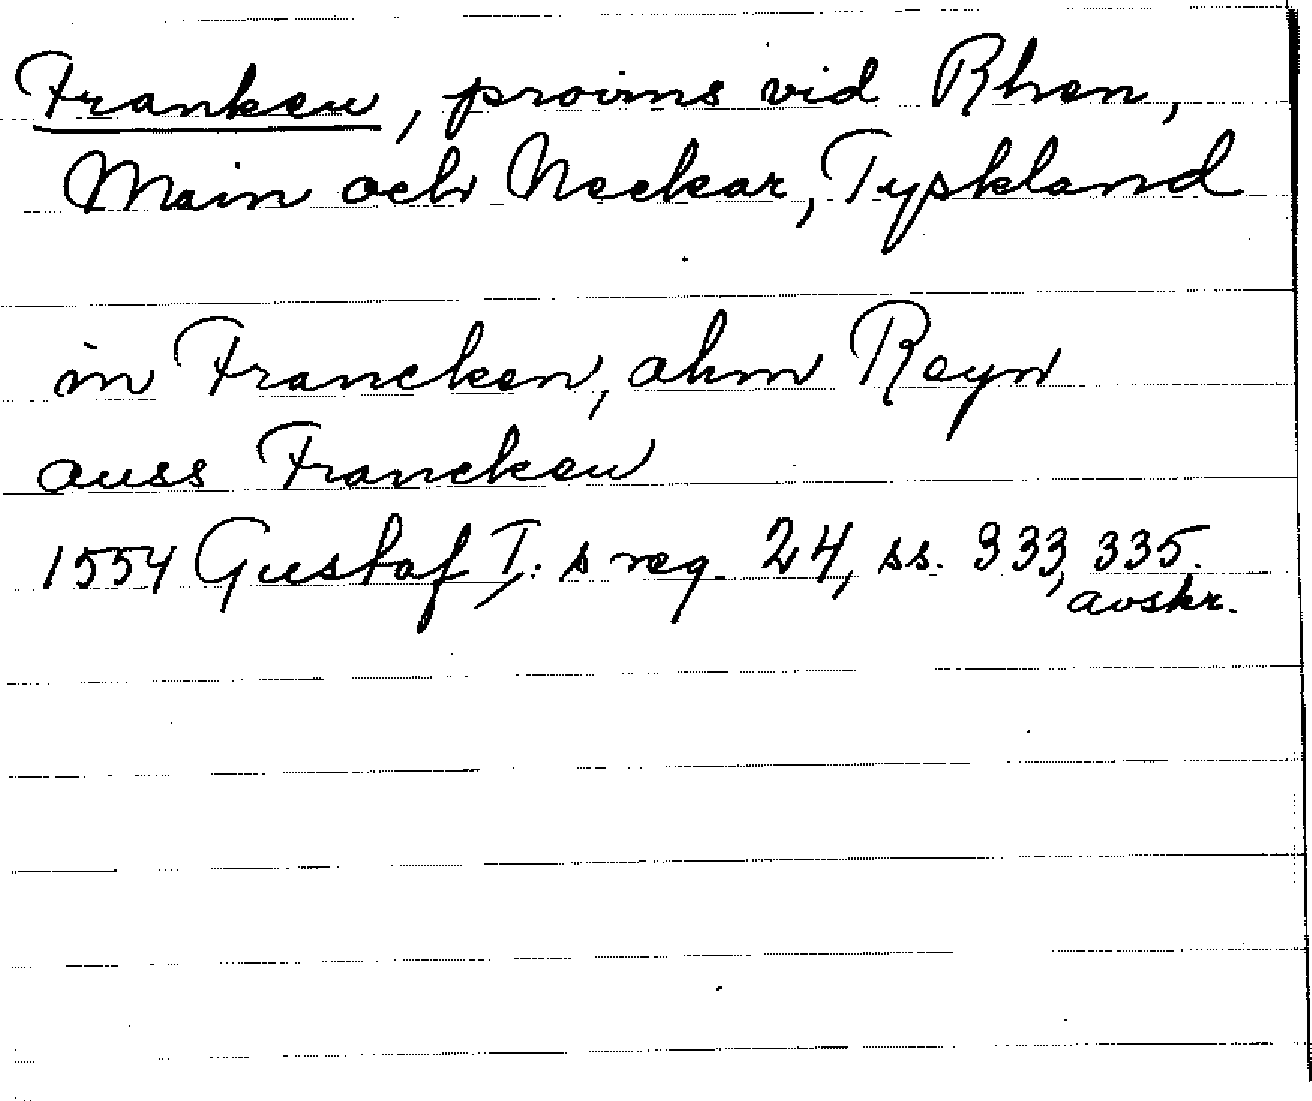 Franken, provins vid Rhen,
Main och Neckar, Tyskland
in Francken, ahm Reyn
auss Francken
1554 Gustaf I:s reg. 24, ss. 333, 335.
avskr.